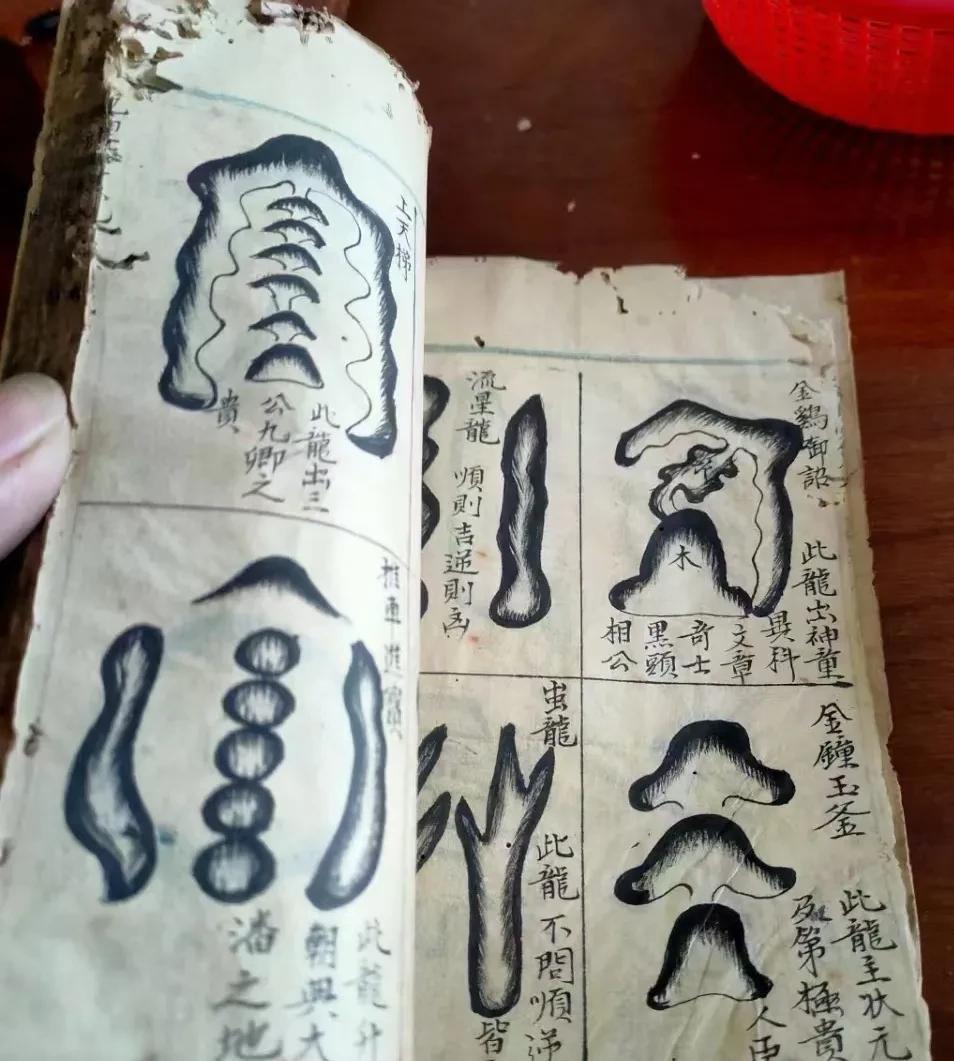 上天梯
此龍出三
公九卿之
貴
推車進寶
此龍升
朝興大
潘之地
金鷄御詔
此龍出神童
異科
文章
奇士
黑頭
相公
流星龍
順則吉逆則凶
金鐘玉釜
此龍主狀元
及第極貴
人臣
蚩龍
此龍不問順逆
皆
木